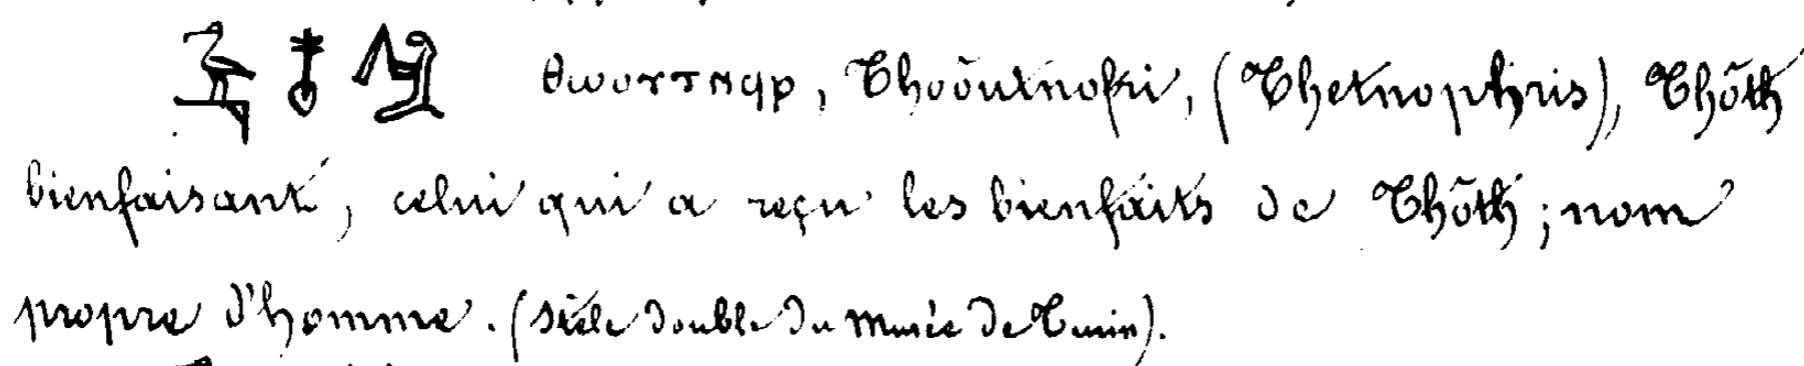 𓅝𓄤𓀀 ⲑⲱⲟⲩⲧⲛϥⲣ, Thōoutnofri, (Thetnophris), Thōth
bienfaisant, celui qui a reçu les bienfaits de Thōth; nom
propre d'homme. (Stèle double du Musée de Turin).